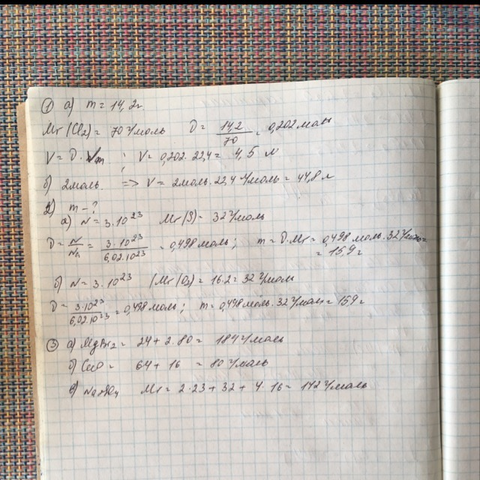 ① а) m = 14,2г
Mr(Cl₂) = 70 г/моль ν = 14,2/70 = 0,202 моль
V = ν · Vm ; V = 0,202 · 22,4 = 4,5 л
б) 2 моль. => V = 2 моль · 22,4 г/моль = 44,8 л
2) m - ?
а) N = 3 · 10²³ Mr(S) = 32 г/моль
ν = N/Na = 3 · 10²³/6,02 · 10²³ = 0,498 моль ; m = ν · Mr = 0,498 моль · 32 г/моль =
= 15,9 г
б) N = 3 · 10²³ (Mr(O₂) = 16·2 = 32 г/моль
ν = 3·10²³/6,02·10²³ = 0,498 моль ; m = 0,498 моль · 32 г/моль = 159 г
③ а) MgBr₂ = 24 + 2 · 80 = 184 г/моль
б) CuO = 64 + 16 = 80 г/моль
Mr = 2 · 23 + 32 + 4 · 16 = 142 г/моль